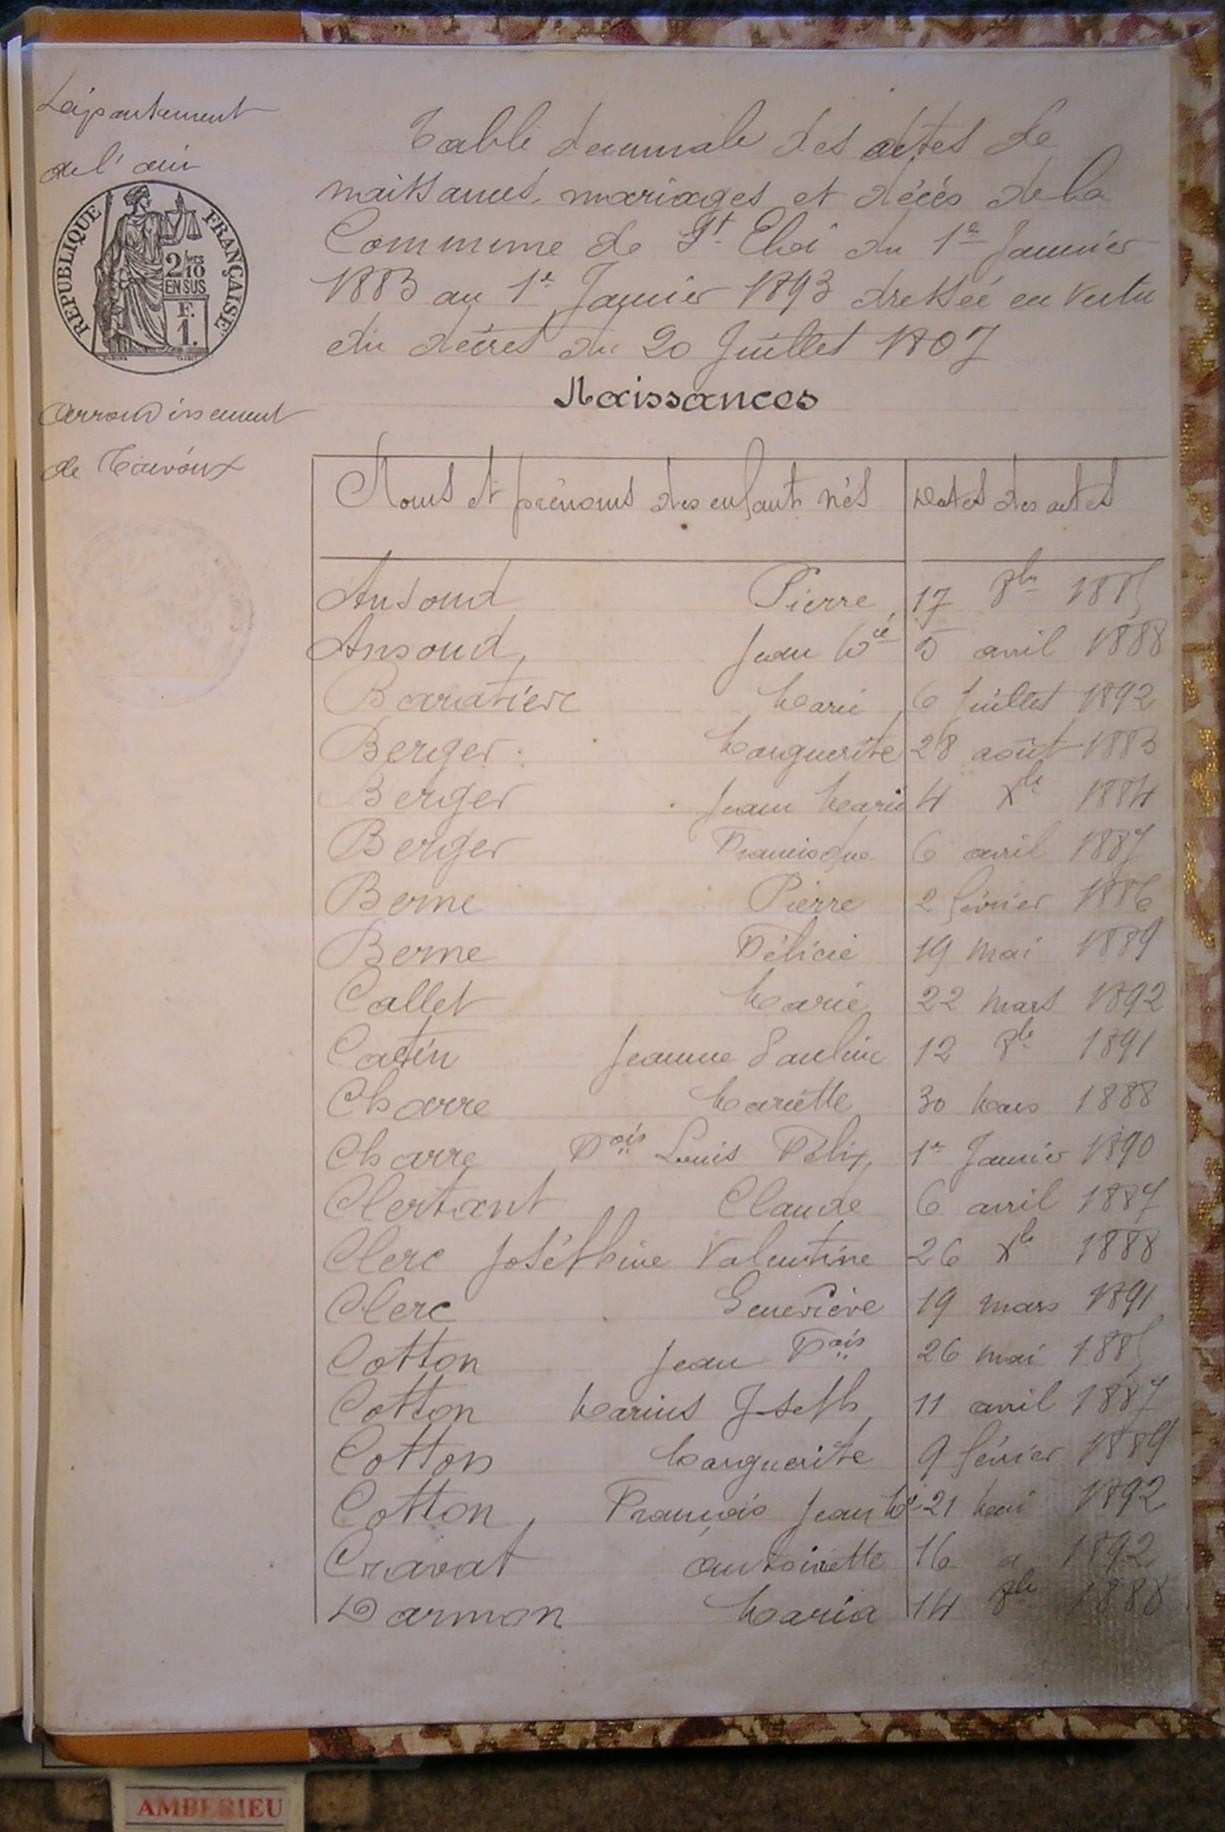 Département
de l'ain
RÉPUBLIQUE FRANÇAISE
2/10
EN SUS
F.
1.
Arrondissement
de Trévoux
Table decennale des actes de
naissances, mariages et décès de la
Commune de St Eloi du 1er Janvier
1883 au 1er Janvier 1893 dressée en vertu
du décret du 20 Juillet 1807
Naissances
Noms et prénoms des enfants nés Dates des actes
Ansoud Pierre 17 8bre 1885
Ansoud Jean 5 avril 1888
Baratier Marie 6 Juillet 1892
Berger Marguerite 28 août 1883
Berger Jean Marie 4 Xbre 1884
Berger Francisque 6 avril 1887
Berne Pierre 2 février 1886
Berne Félicie 19 mai 1889
Callet Marie 22 mars 1892
Catin Jeanne Pauline 12 8bre 1891
Charre Mariette 30 Mars 1888
Charre Fois Louis Félix 1er Janvier 1890
Clertant Claude 6 avril 1887
Clerc Joséphine Valentine 26 Xbre 1888
Clerc Geneviève 19 mars 1891
Cotton Jean Fois 26 mai 1885
Cotton Marius Joseph 11 avril 1887
Cotton Marguerite 9 février 1889
Cotton François Jean Mie 21 Mai 1892
Cravat Antoinette 16 1892
Darmon Maria 14 8bre 1888
AMBERIEU